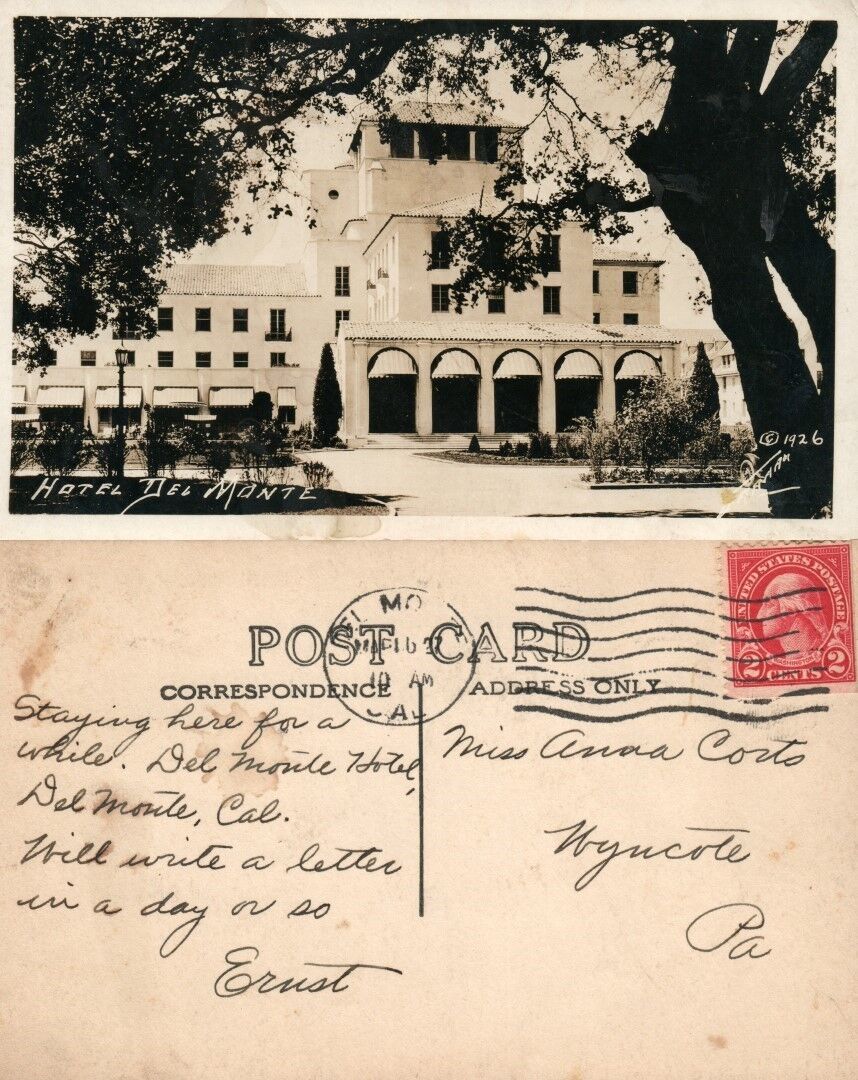 © 1926
HOTEL DEL MONTE
UNITED STATES POSTAGE
WASHINGTON
2 CENTS 2
DEL MONTE
10 AM
CAL
POST CARD
CORRESPONDENCE
ADDRESS ONLY
Staying here for a
while. Del Monte Hotel,
Del Monte, Cal.
Will write a letter
in a day or so
Ernst
Miss Anna Corts
Wyncote
Pa